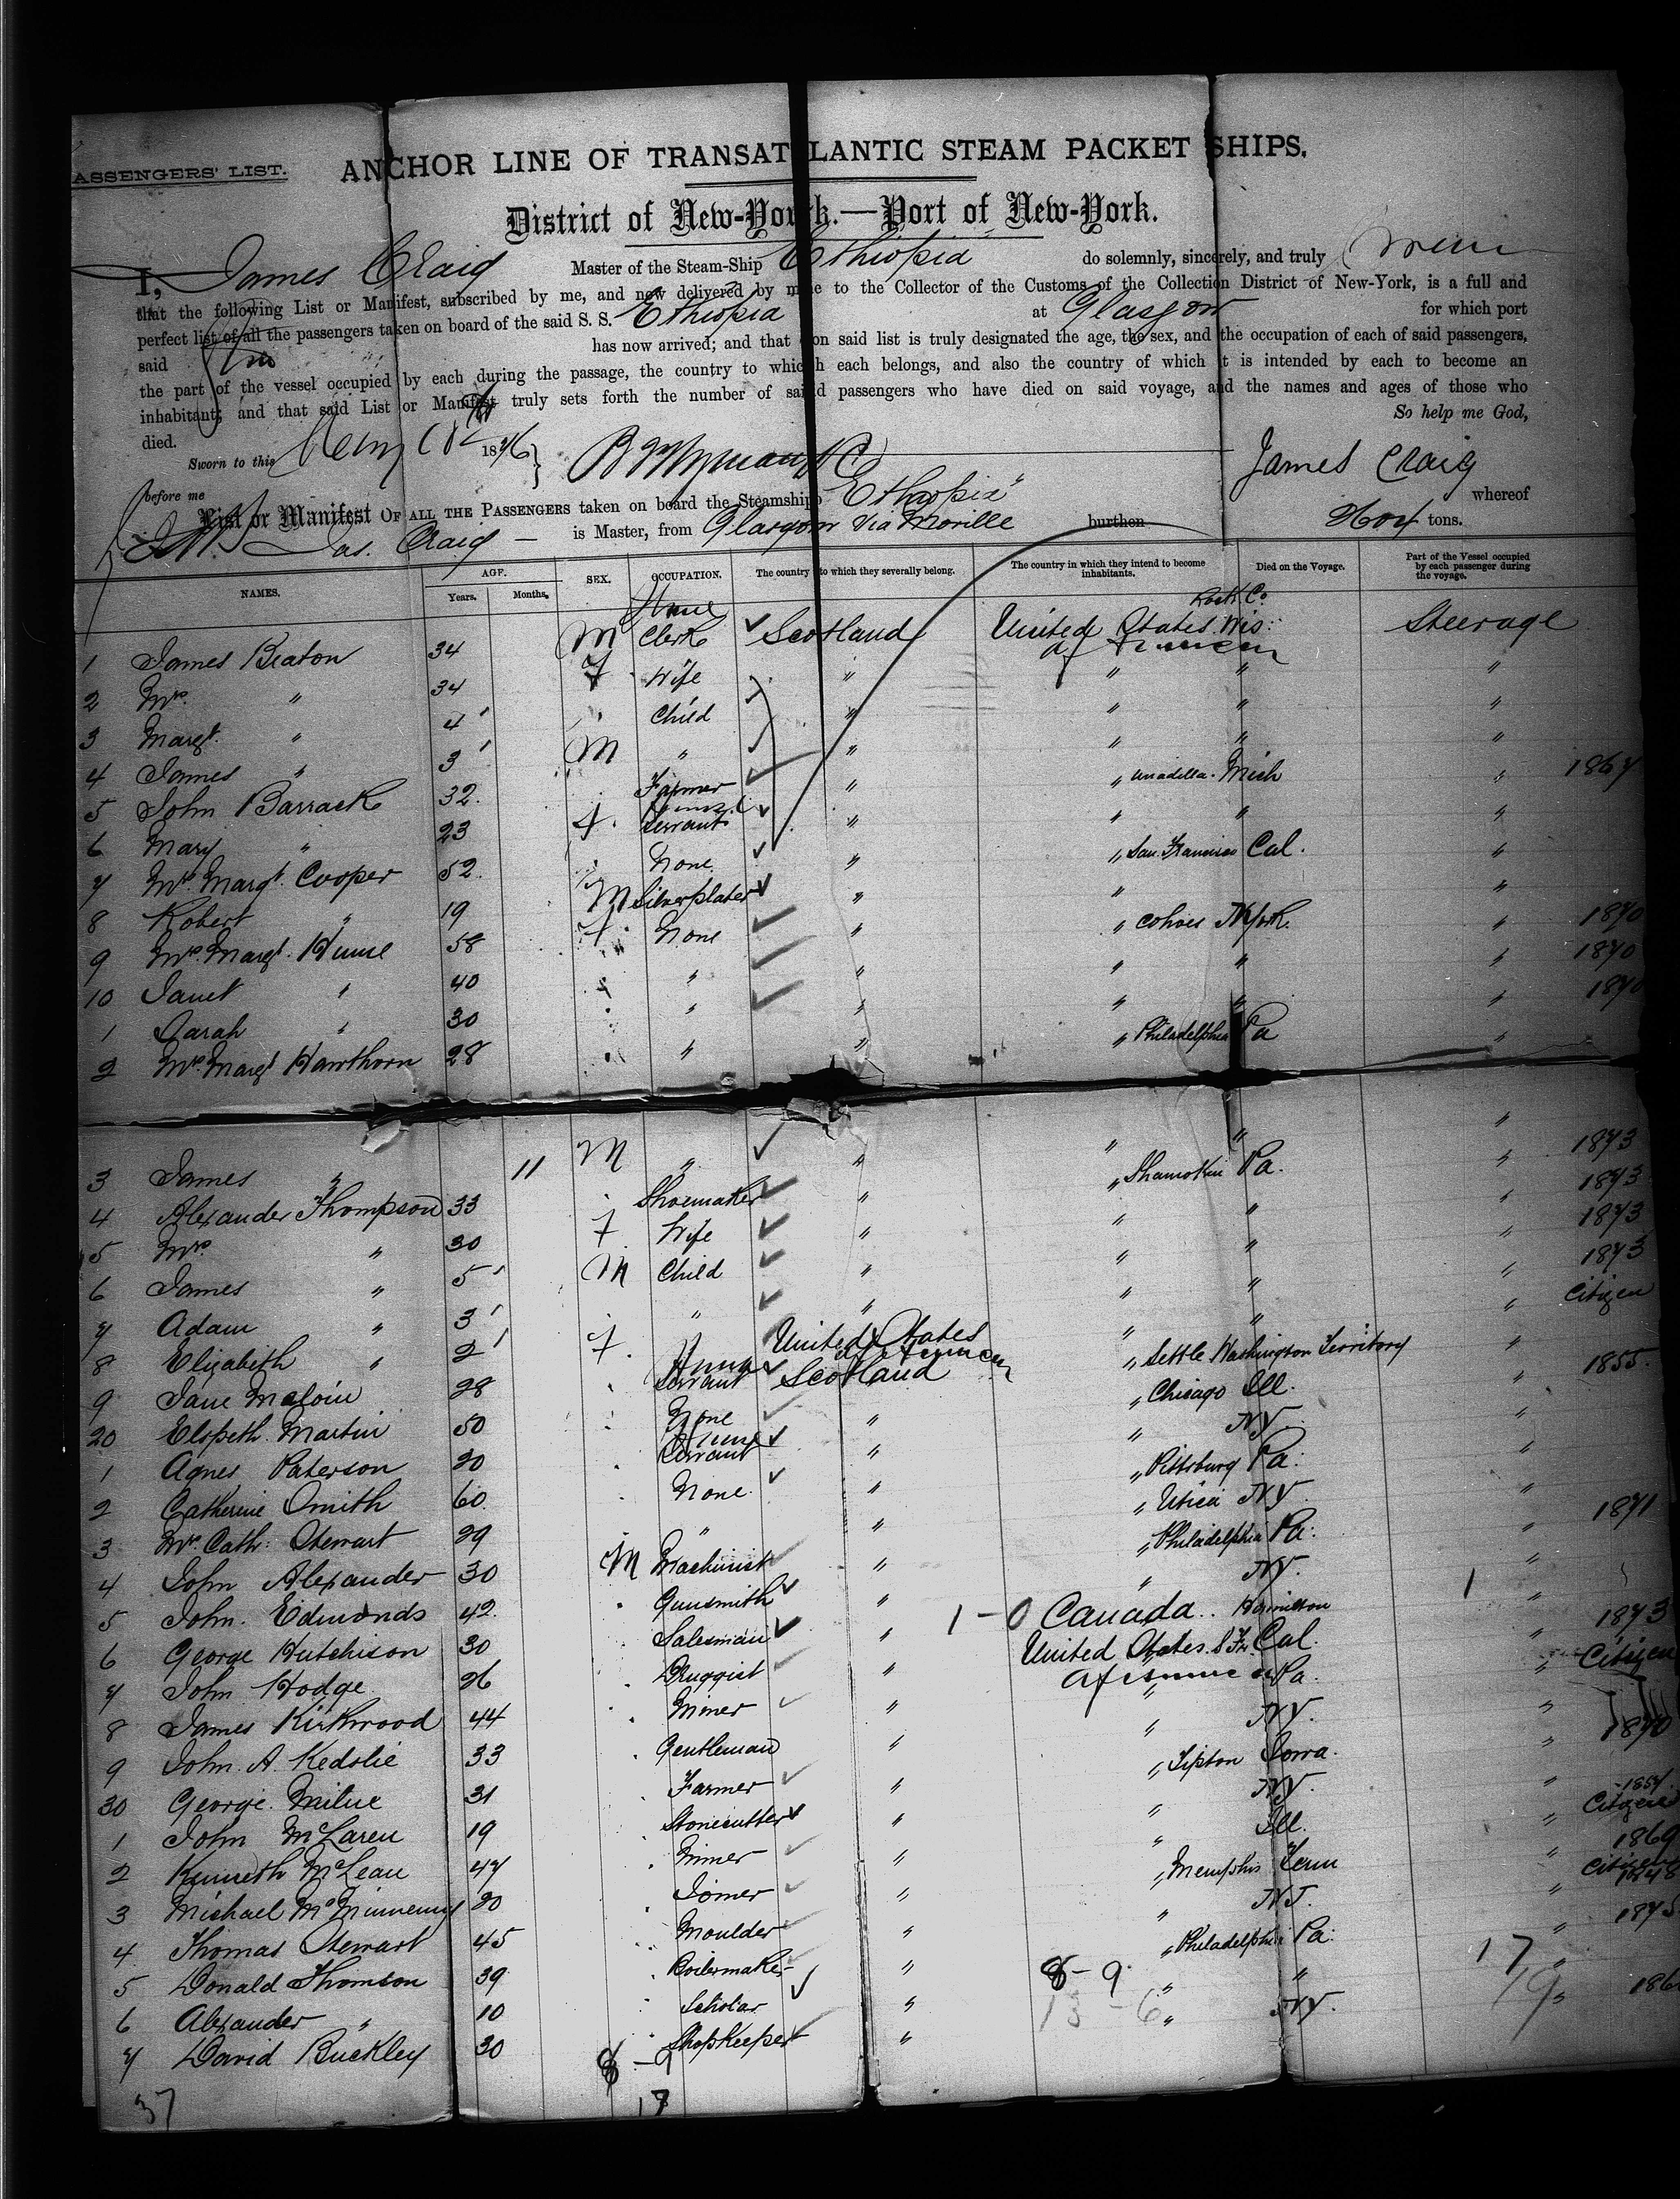 PASSENGERS' LIST.
ANCHOR LINE OF TRANSATLANTIC STEAM PACKET SHIPS.
District of New-York.—Port of New-York.
I, James Craig Master of the Steam-Ship Ethiopia do solemnly, sincerely, and truly swear
that the following List or Manifest, subscribed by me, and now delivered by me to the Collector of the Customs of the Collection District of New-York, is a full and
perfect list of all the passengers taken on board of the said S. S. Ethiopia at Glasgow for which port
said has now arrived; and that on said list is truly designated the age, the sex, and the occupation of each of said passengers,
the part of the vessel occupied by each during the passage, the country to which each belongs, and also the country of which it is intended by each to become an
inhabitant; and that said List or Manifest truly sets forth the number of said passengers who have died on said voyage, and the names and ages of those who
died. So help me God,
Sworn to this 1876 James Craig
before me
List or Manifest OF ALL THE PASSENGERS taken on board the Steamship "Ethiopia" whereof
Jas. Craig — is Master, from Glasgow via Moville burthen 2604 tons.
NAMES. AGE. Years. Months. SEX. OCCUPATION. The country to which they severally belong. The country in which they intend to become inhabitants. Died on the Voyage. Part of the Vessel occupied by each passenger during the voyage.
1 James Beaton 34 M Clerk Scotland United States Wis: Rock Co. Steerage
2 Mrs. " 34 F Wife " " " "
3 Margt. " 4 " Child " " " "
4 James " 3 M " " " " "
5 John Barrack 32 Farmer " " Unadilla Mich " 1867
6 Mary " 23 F. Servant " " " "
7 Mrs. Margt. Cooper 52 None " " San Francisco Cal. "
8 Robert " 19 M Silverplater " " "
9 Mrs. Margt. Hume 58 F. None " " Cohoes N York. " 1870
10 Janet " 40 " " " " " " 1870
1 Sarah " 30 " " " " " " 1870
2 Mrs. Margt Hawthorn 28 " " " " Philadelphia Pa "
3 James " 11 M " " " " "
4 Alexander Thompson 33 Shoemaker " " Shamokin Pa. " 1873
5 Mrs " 30 F Wife " " " " 1873
6 James " 5 M Child " " " " 1873
7 Adam " 3 " " " " " 1873
8 Elizabeth " 2 F. United States " " " Citizen
9 Jane Maloin 28 Servant Scotland " Settle Washington Territory "
20 Elspeth Martin 50 None " " Chicago Ill. " 1855
1 Agnes Paterson 20 Servant " " N.Y. "
2 Catherine Smith 60 None. " " Pittsburg Pa. "
3 Mrs Cath: Stewart 29 " " " Utica N.Y. "
4 John Alexander 30 M Machinist " " Philadelphia Pa: " 1871
5 John Edmonds 42 Gunsmith " " N.Y. "
6 George Hutchison 30 Salesman " 1-0 Canada.. Hamilton 1 "
7 John Hodge 26 Druggist " United States. S. Fr. Cal. " 1873
8 James Kirkwood 44 Miner " " Pa. " Citizen
9 John A. Kedslie 33 Gentleman " " N.Y. "
30 George Milne 31 Farmer " " Tipton Iowa. " 1870
1 John McLaren 19 Stonecutter " " N.Y. "
2 Kenneth McLean 47 Miner " " Ill. " 1854 Citizen
3 Michael McMinnemy 20 Joiner " " Memphis Tenn " 1869
4 Thomas Stewart 45 Moulder " " N.J. " Citizen 1848
5 Donald Thomson 39 Boilermaker " " Philadelphia Pa: " 1873
6 Alexander " 10 Scholar " 8-9 " " 17 "
7 David Buckley 30 Shopkeeper " 13-6 " N.Y. 19 " 186
37 8-9
17